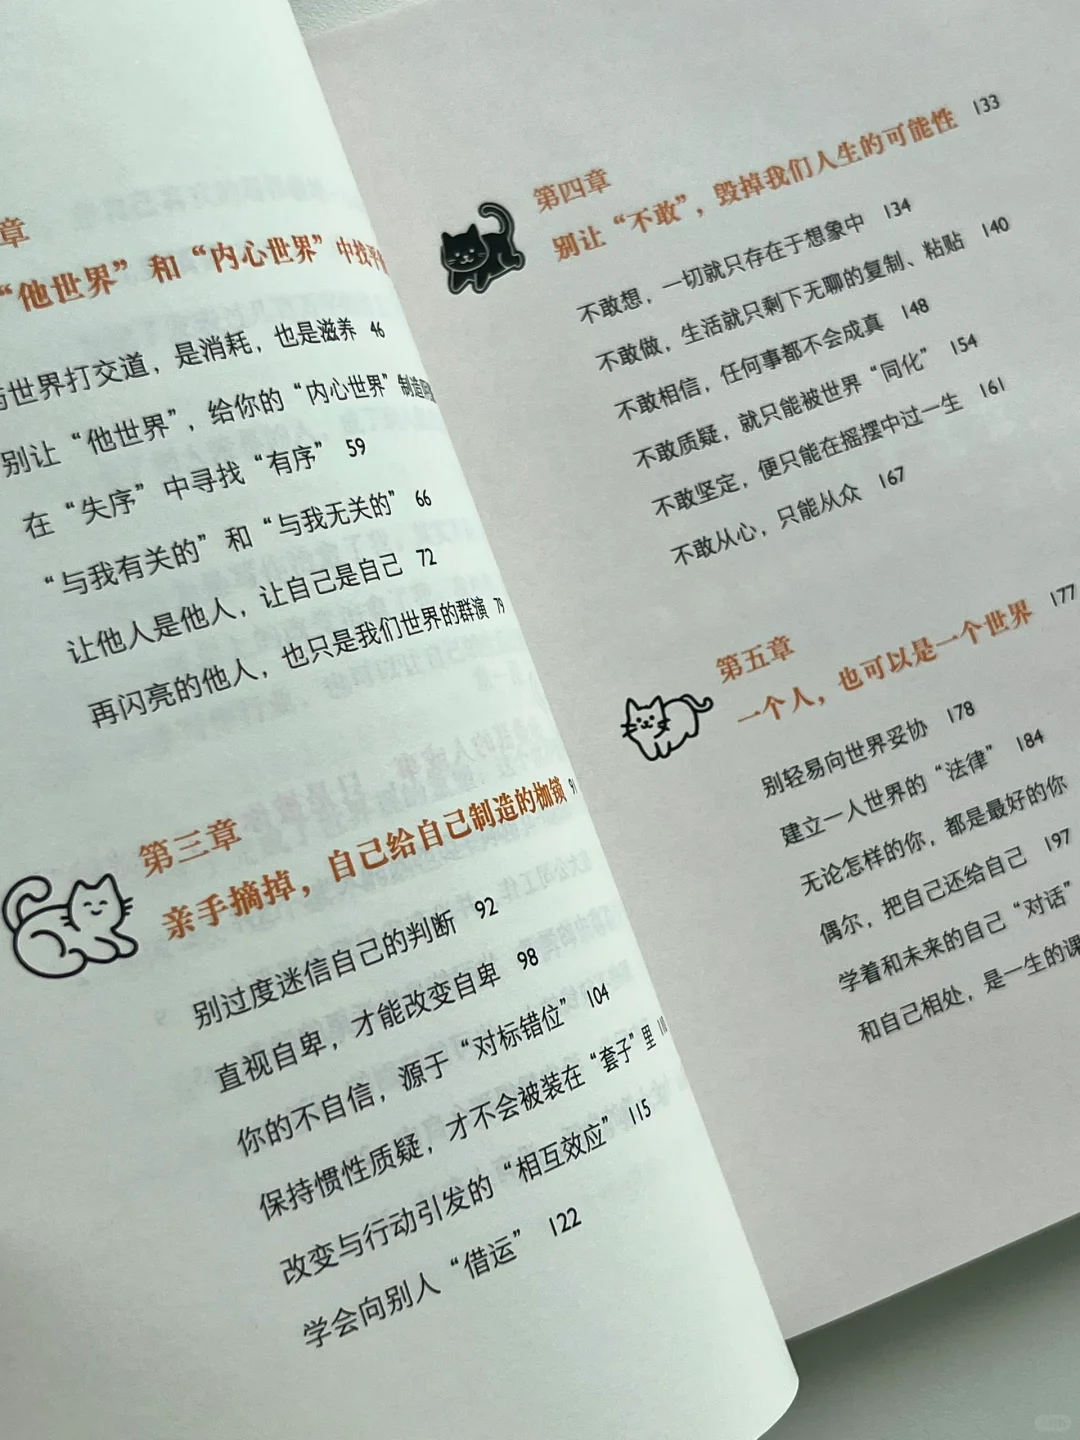 章
“他世界”和“内心世界”中找平
与世界打交道，是消耗，也是滋养 46
别让“他世界”，给你的“内心世界”制造
在“失序”中寻找“有序” 59
“与我有关的”和“与我无关的” 66
让他人是他人，让自己是自己 72
再闪亮的他人，也只是我们世界的群演 79
第三章
亲手摘掉，自己给自己制造的枷锁 91
别过度迷信自己的判断 92
直视自卑，才能改变自卑 98
你的不自信，源于“对标错位” 104
保持惯性质疑，才不会被装在“套子”里
改变与行动引发的“相互效应” 115
学会向别人“借运” 122
第四章
别让“不敢”，毁掉我们人生的可能性 133
不敢想，一切就只存在于想象中 134
不敢做，生活就只剩下无聊的复制、粘贴 140
不敢相信，任何事都不会成真 148
不敢质疑，就只能被世界“同化” 154
不敢坚定，便只能在摇摆中过一生 161
不敢从心，只能从众 167
第五章
一个人，也可以是一个世界 177
别轻易向世界妥协 178
建立一人世界的“法律” 184
无论怎样的你，都是最好的你
偶尔，把自己还给自己 197
学着和未来的自己“对话”
和自己相处，是一生的课